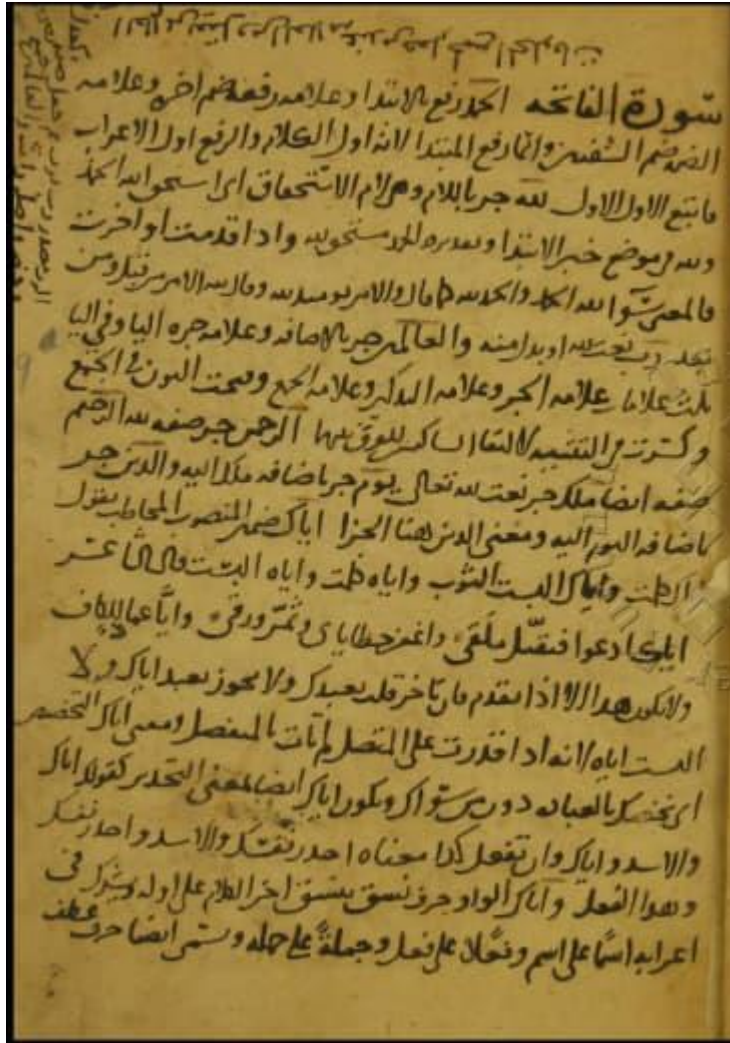 سورة الفاتحه الحمد رفع بالابتدا وعلامه رفعه ضم اخره وعلامه
الضم ضم الشفتين وانما رفع المبتدا لانه اول الكلام والرفع اول الاعراب
فاتبع الاول الاول لله جر باللام وهي لام الاستحقاق اى استحق الله الحمد
ولله في موضع خبر الابتدا وتقديره الحمد مستحق لله واذا قدمت او اخرت
فالمعنى سوا لله الحمد والحمد لله كما قال والامر يومئذ لله وقال لله الامر من قبل ومن
بعد رب نعت لله او بدل منه والعالمين جر بالاضافه وعلامه جره اليا وفي اليا
ثلث علامات علامه الجر وعلامه التذكير وعلامه الجمع وفتحت النون في الجمع
وكسرت في التثنيه لالتقا الساكنين للفرق بينهما الرحمن جر صفه لله الرحيم
صفه ايضا ملك جر نعت لله تعالى يوم جر باضافه ملك اليه والدين جر
باضافه اليوم اليه ومعنى الدين هنا الجزا اياك ضمير المنصوب المخاطب يقول
اياك وايا البست الثوب واياه ظننت واياه البست قال الشاعر
اياك ادعوا فتقبل ملقي واغفر خطاياى وثمر ورقى وايا عماد للكاف
ولا يكون هذا الا اذا تقدم فان تاخر قلت نعبدك ولا يجوز نعبد اياك ولا
البست اياه لانه اذا قدرت على المتصل لم تات بالمنفصل ومعنى اياك التخصيص
اى نخصك بالعباده دون من سواك ويكون اياك ايضا بمعنى التحذير كقولك اياك
والاسد واياك وان تفعل كذا معناه احذر نفسك والاسد واحذر نفسك
وهذا الفعل واياك الواو حرف نسق ينسق اخر الكلام على اوله ويشركه في
اعرابه اسما على اسم وفعلا على فعل وجملة على جمله ويسمى ايضا حرف عطف